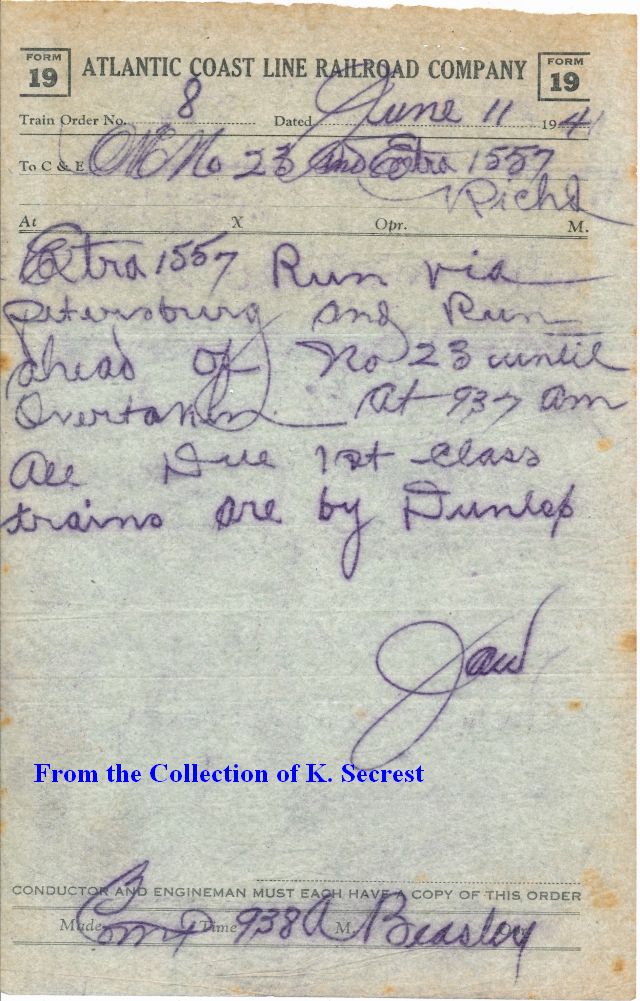 FORM 19 ATLANTIC COAST LINE RAILROAD COMPANY FORM 19
Train Order No. 8 Dated June 11 1941
To C & E No 23 and Extra 1557
Richd
At X Opr. M.
Extra 1557 Run via
Petersburg and Run
ahead of No 23 until
Overtaken At 937 am
All Due 1st class
trains are by Dunlop
JAW
From the Collection of K. Secrest
CONDUCTOR AND ENGINEMAN MUST EACH HAVE A COPY OF THIS ORDER
Made Comp Time 938 A M. Beasley